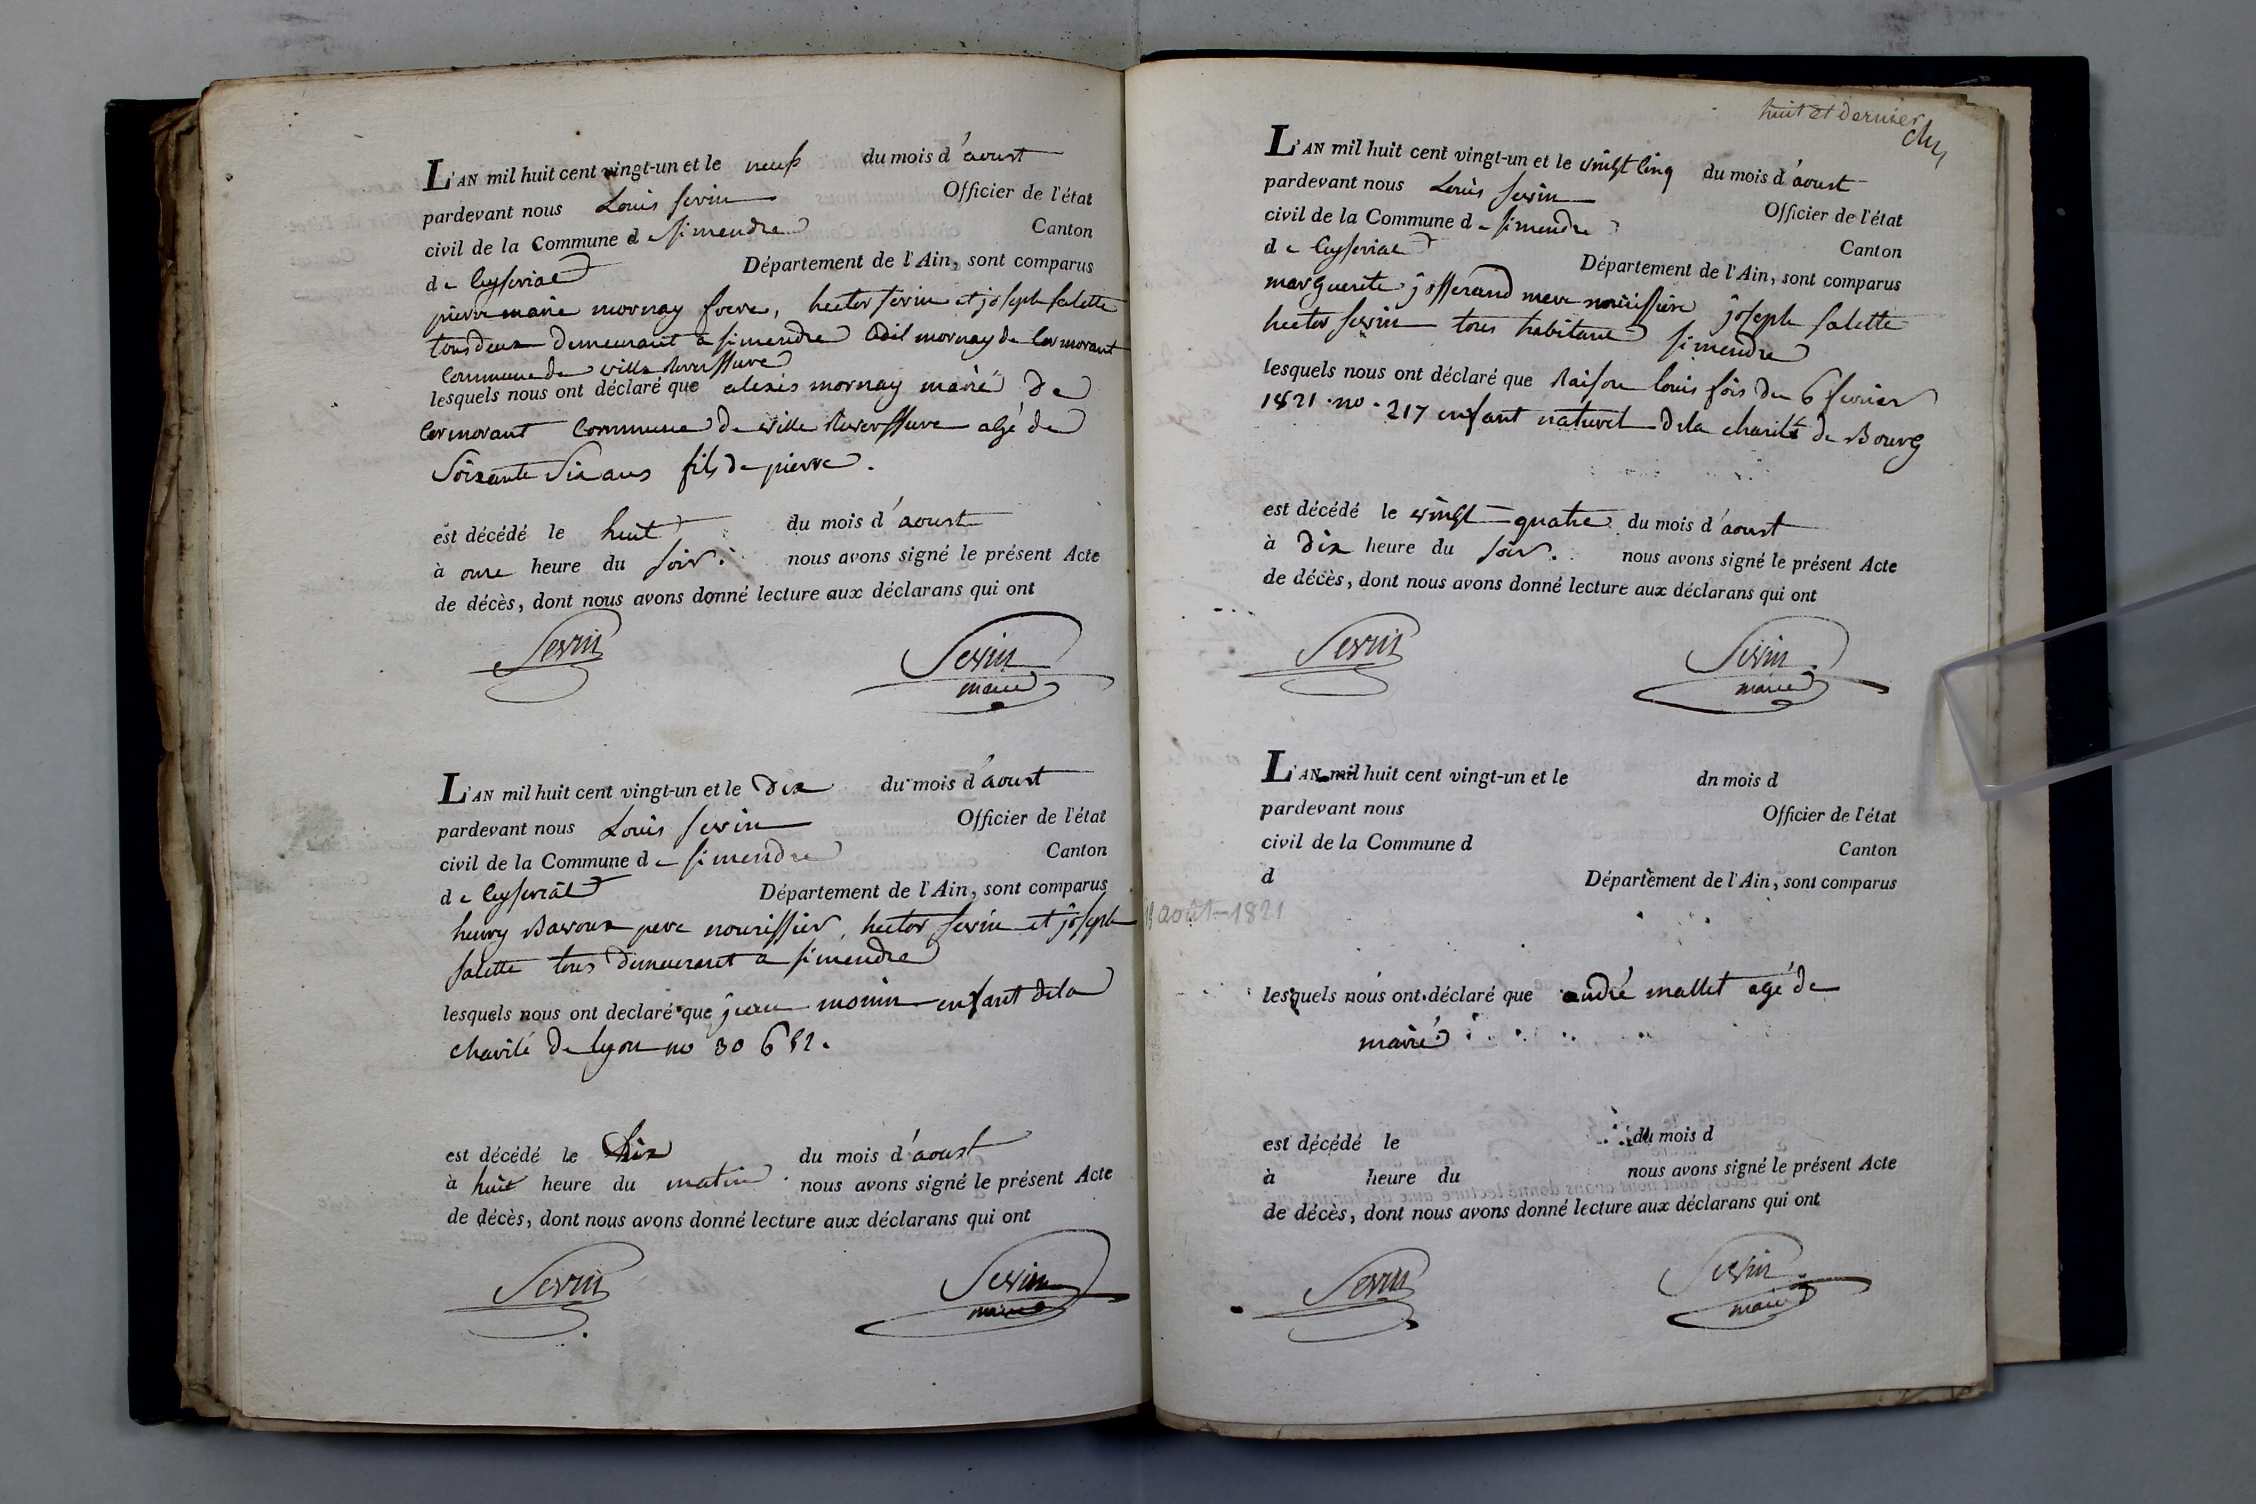 L'AN mil huit cent vingt-un et le neuf du mois d'aoust
pardevant nous Louis sevin Officier de l'état
civil de la Commune de simendre Canton
de Ceyseriat Département de l'Ain, sont comparus
pierre marie mornay frere, hector sevin et joseph salette
tous deux demeurant a simendre Ledit mornay de Cormorant
Commune de ville Reverssure
lesquels nous ont déclaré que alexis mornay marié de
Cormorant Commune de ville Reverssure agé de
Soixante Six ans fils de pierre.
est décédé le huit du mois d'aoust
à onze heure du soir. nous avons signé le présent Acte
de décès, dont nous avons donné lecture aux déclarans qui ont
Sevin Sevin
maire
L'AN mil huit cent vingt-un et le Dix du mois d'aoust
pardevant nous Louis sevin Officier de l'état
civil de la Commune de simendre Canton
de Ceyseriat Département de l'Ain, sont comparus
henry Bavoux pere nourissier, hector sevin et joseph
salette tous demeurant a simendre
lesquels nous ont declaré que jean monin enfant dela
charité de lyon no 30 652.
est décédé le dix du mois d'aoust
à huit heure du matin. nous avons signé le présent Acte
de décès, dont nous avons donné lecture aux déclarans qui ont
Sevin Sevin
maire
huit et dernier
L'AN mil huit cent vingt-un et le vingt cinq du mois d'aoust
pardevant nous Louis sevin Officier de l'état
civil de la Commune de simendre Canton
de Ceyseriat Département de l'Ain, sont comparus
marguerite josserand mere nourissiere joseph salette
hector sevin tous habitant simendre
lesquels nous ont déclaré que Raison louis fois du 6 fevrier
1821 no. 217 enfant naturel dela charité de Bourg
est décédé le vingt-quatre du mois d'aoust
à dix heure du soir. nous avons signé le présent Acte
de décès, dont nous avons donné lecture aux déclarans qui ont
Sevin Sevin
maire
L'AN mil huit cent vingt-un et le dn mois d
pardevant nous Officier de l'état
civil de la Commune d Canton
d Département de l'Ain, sont comparus
août-1821
lesquels nous ont déclaré que andré mallet agé de
marié
est décédé le du mois d
à heure du nous avons signé le présent Acte
de décès, dont nous avons donné lecture aux déclarans qui ont
Sevin Sevin
maire